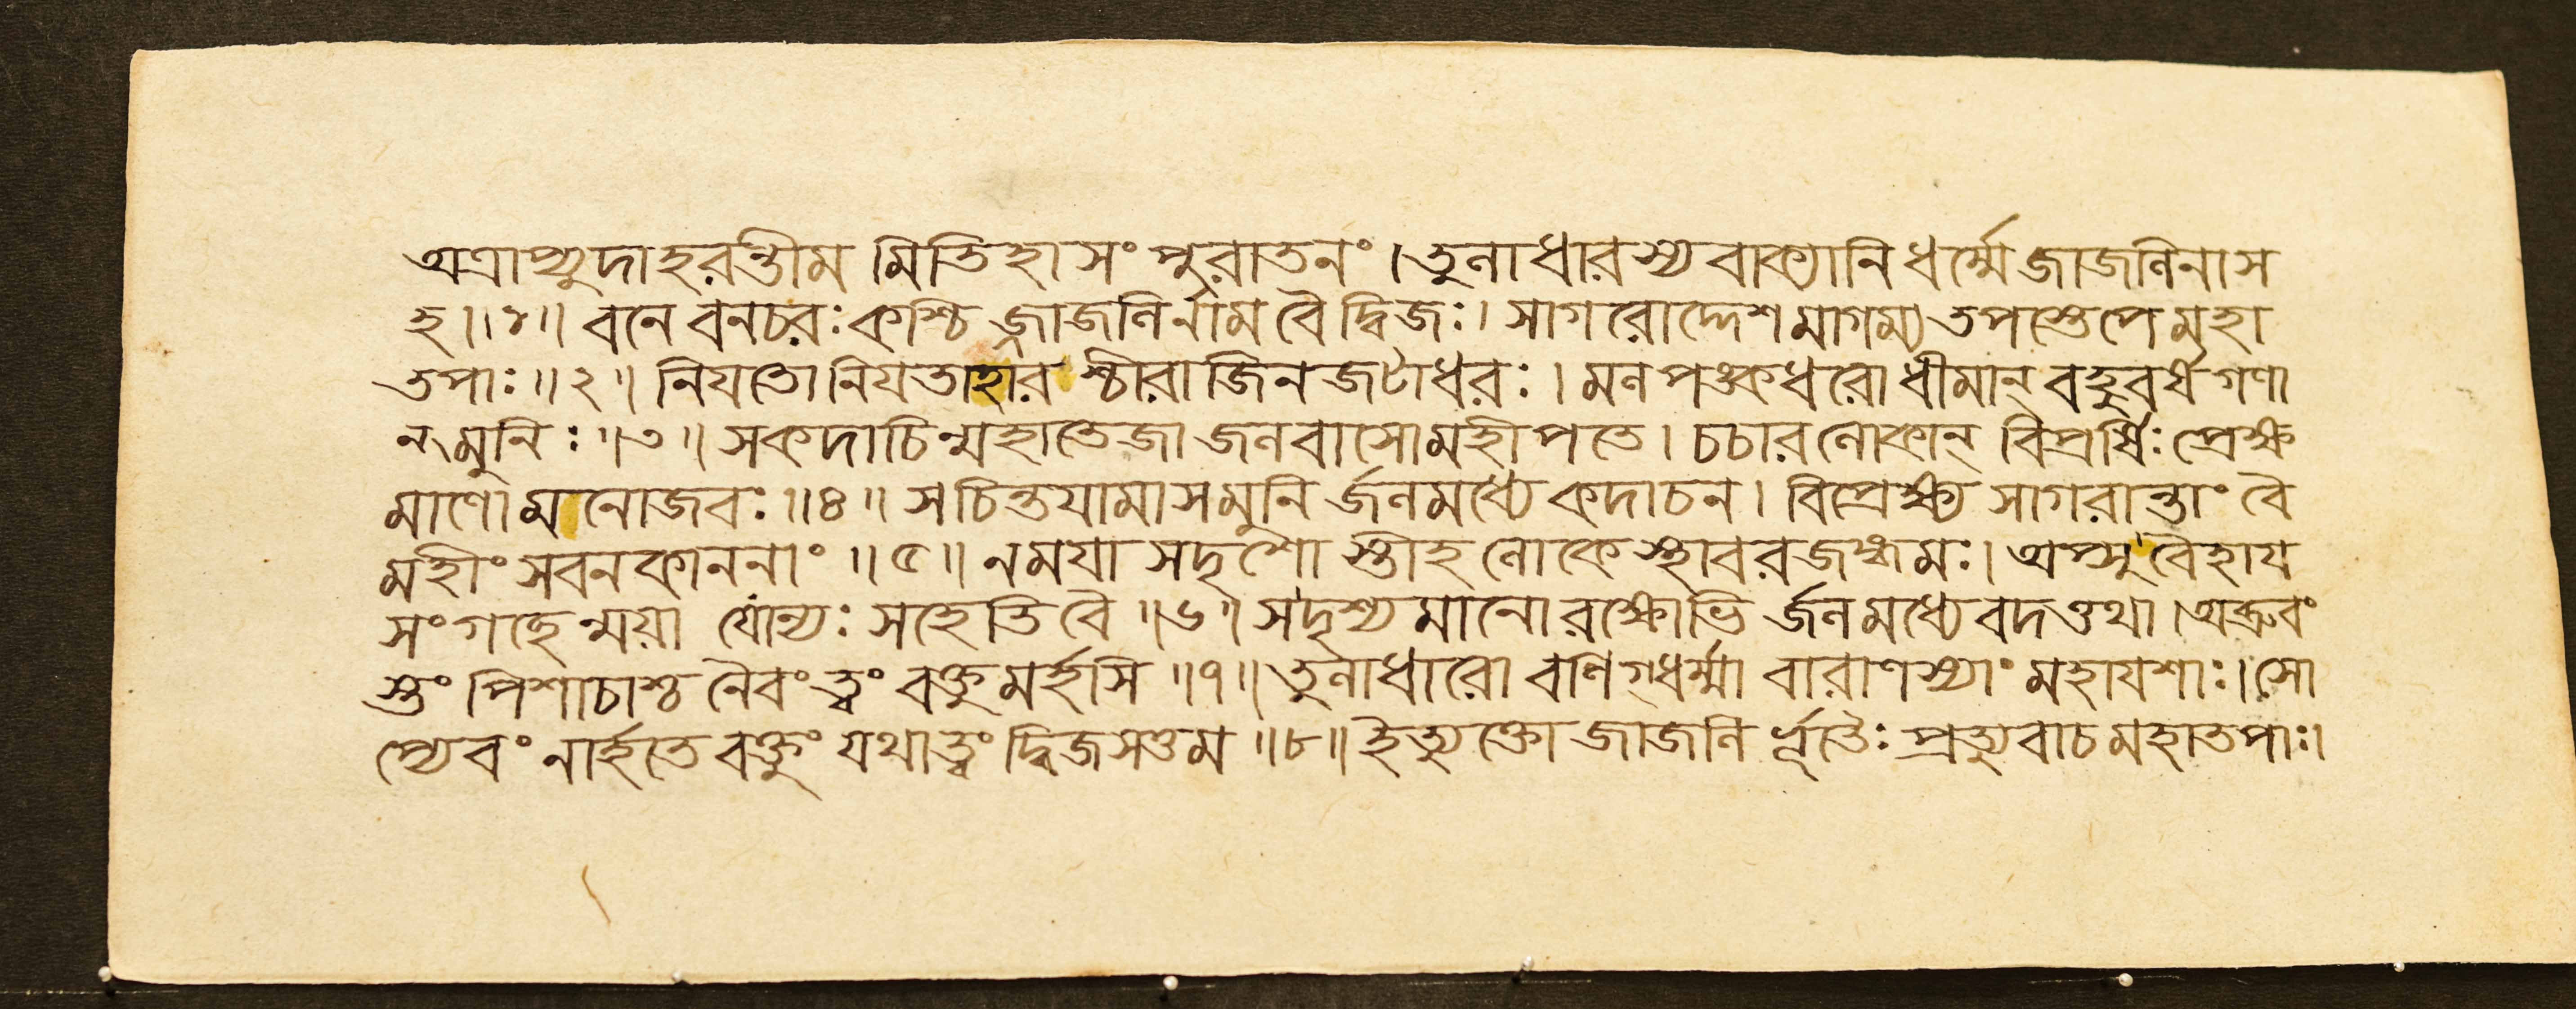 অত্রাপ্যুদাহরন্তীম মিতিহাসং পুরাতনং। তুলাধারস্য বাক্যানি ধর্ম্মে জাজলিনা স
হ॥১॥ বনে বনচরঃ কশ্চি জ্জাজলির্নাম বৈ দ্বিজঃ। সাগরোদ্দেশমাগম্য তপস্তেপে মহা
তপাঃ॥২॥ নিযতো নিযতাহার শ্চীরাজিনজটাধরঃ। মলপঙ্কধরো ধীমান্ বহুবর্ষগণা
ন্ মুনিঃ॥৩॥ স কদাচিন্মহাতেজা জলবাসো মহীপতে। চচার লোকান্ বিপ্রর্ষিঃ প্রেক্ষ
মাণো মনোজবঃ॥৪॥ স চিন্তযামাস মুনি র্জলমধ্যে কদাচন। বিপ্রেক্ষ্য সাগরান্তাং বৈ
মহীং সবনকাননাং॥৫॥ ন মযা সদৃশো স্তীহ লোকে স্থাবরজঙ্গমঃ। অপ্সু বৈহায
সং গচ্ছেন্ময়া যোন্যঃ সহেতি বৈ॥৬॥ স দৃশ্যমানো রক্ষোভি র্জলমধ্যেবদত্তথা। অব্রুবং
স্তং পিশাচাশ্চ নৈবং ত্বং বক্তুমর্হসি॥৭॥ তুলাধারো বণিগ্ধর্ম্মা বারাণস্যাং মহাযশাঃ। সো
প্যেবং নার্হতে বক্তুং যথা ত্বং দ্বিজসত্তম॥৮॥ ইত্যুক্তো জাজলি র্ভূতৈঃ প্রত্যুবাচ মহাতপাঃ।